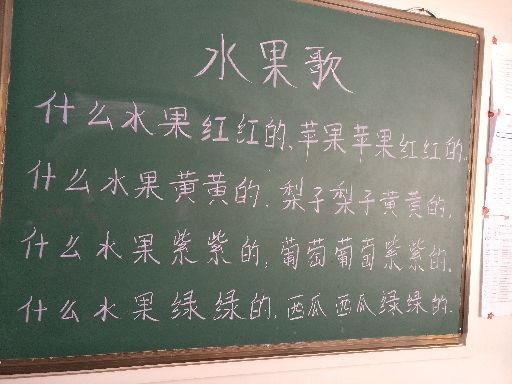 水果歌
什么水果红红的、苹果苹果红红的。
什么水果黄黄的.梨子梨子黄黄的.
什么水果紫紫的,葡萄葡萄紫紫的.
什么水果绿绿的.西瓜西瓜绿绿的.